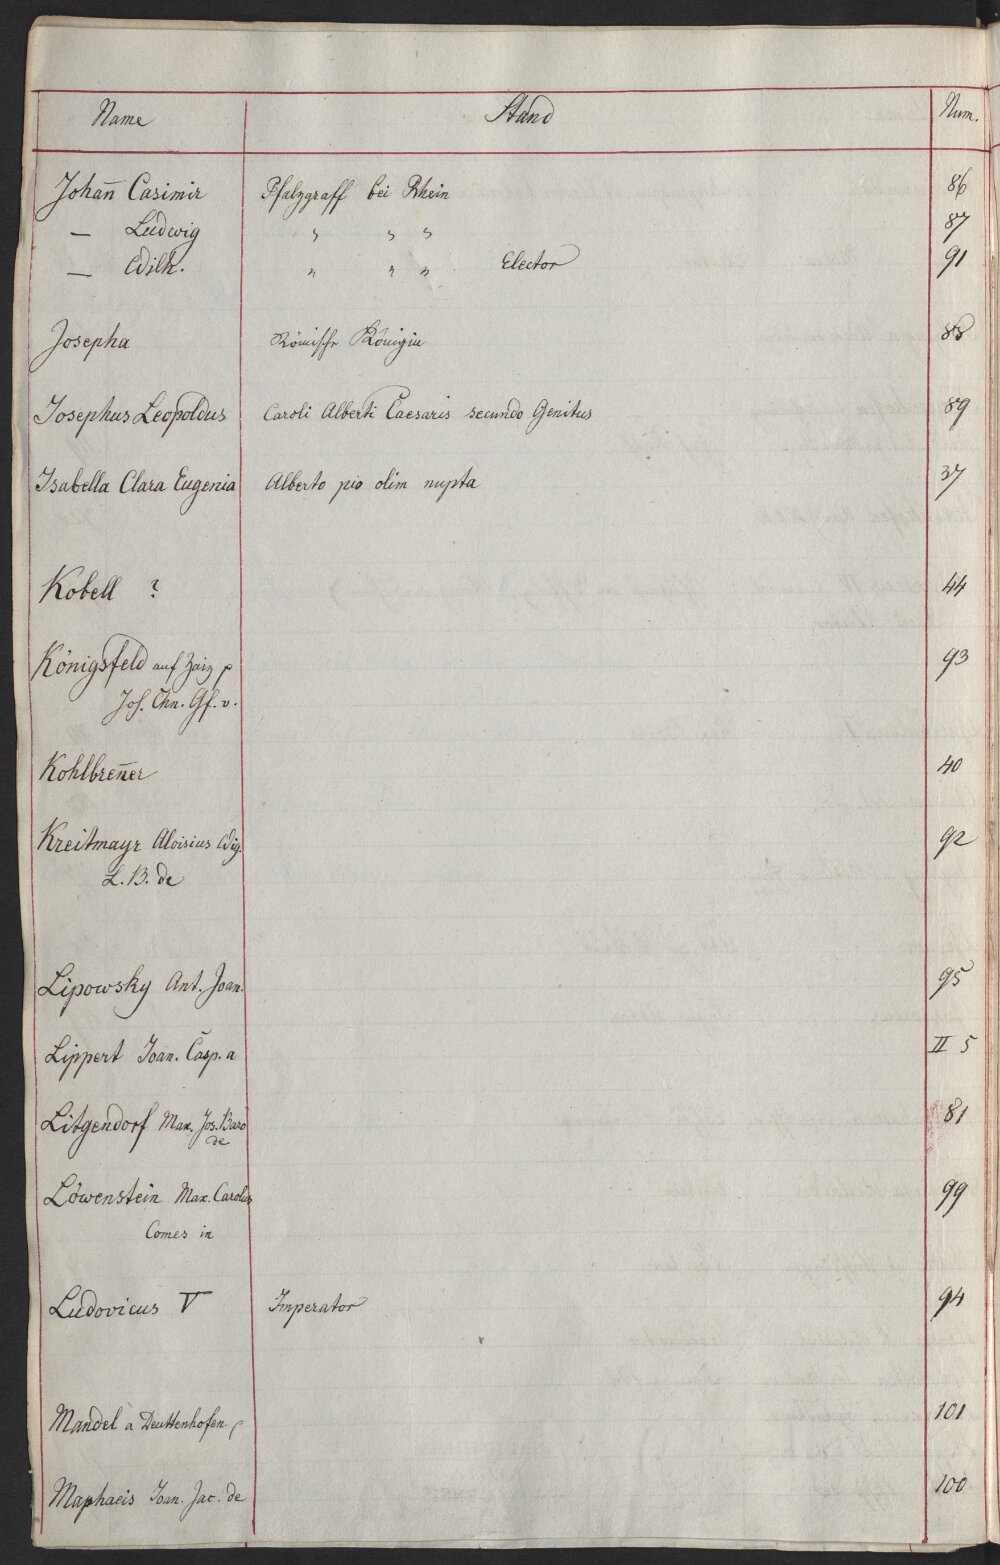 Name Stand Num.
Johan̄ Casimir Pfalzgraff bei Rhein 86
— Ludwig " " " 87
— Wilh. " " " Elector 91
Josepha Römische Königin 88
Josephus Leopoldus Caroli Alberti Caesaris secundo Genitus 89
Isabella Clara Eugenia Alberto pio olim nupta 37
Kobell ? 44
Königsfeld auf Zaiz p 93
Jos. Chn. Gf. v.
Kohlbren̄er 40
Kreitmayr Aloisius Wig. 92
L. B. de
Lipowsky Ant. Joan. 95
Lippert Joan. Casp. a II 5
Litgendorf Max. Jos. Baro 81
de
Löwenstein Max. Carolus 99
Comes in
Ludovicus V Imperator 94
Mandel a Deuttenhofen p 101
Maphaeis Joan. Jac. de 100